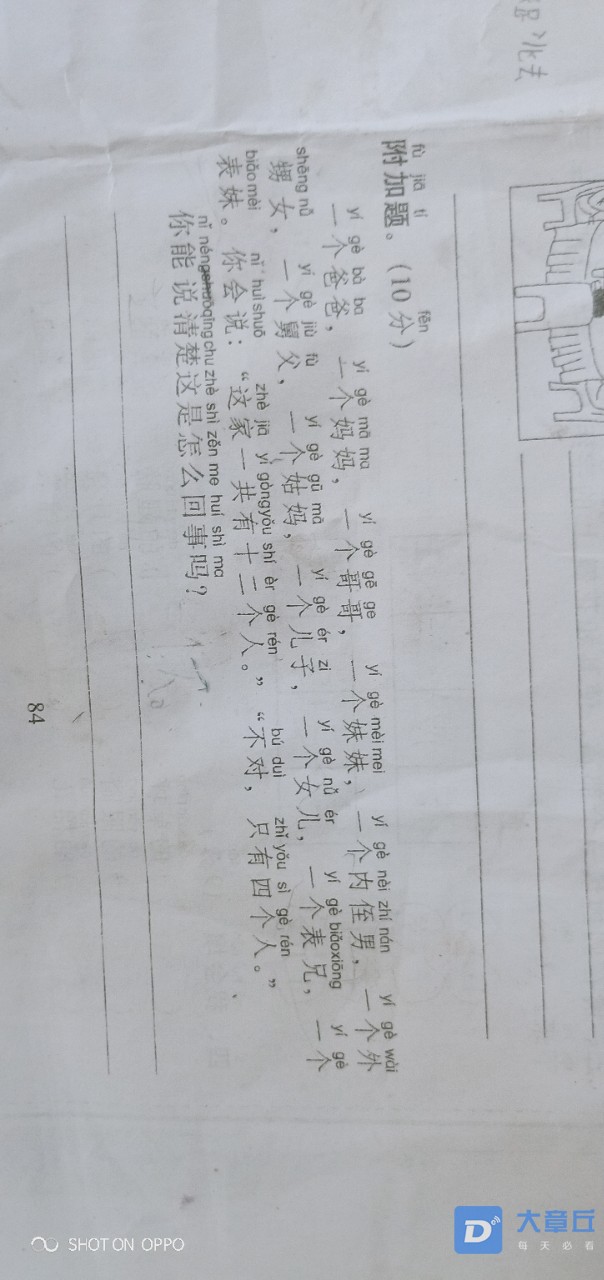 fù jiā tí fēn
附加题。(10分)
yí gè bà ba yí gè mā ma yí gè gē ge yí gè mèi mei yí gè nèi zhí nán yí gè wài
一个爸爸,一个妈妈,一个哥哥,一个妹妹,一个内侄男,一个外
shēng nǚ yí gè jiù fù yí gè gū mā yí gè ér zi yí gè nǚ ér yí gè biǎoxiōng yí gè
甥女,一个舅父,一个姑妈,一个儿子,一个女儿,一个表兄,一个
biǎo mèi nǐ huì shuō zhè jiā yí gòngyǒu shí èr gè rén bú duì zhǐ yǒu sì gè rén
表妹。你会说:“这家一共有十二个人。”“不对,只有四个人。”
nǐ néngshuōqīng chu zhè shì zěn me huí shì ma
你能说清楚这是怎么回事吗?
84
SHOT ON OPPO
大章丘
每天必看